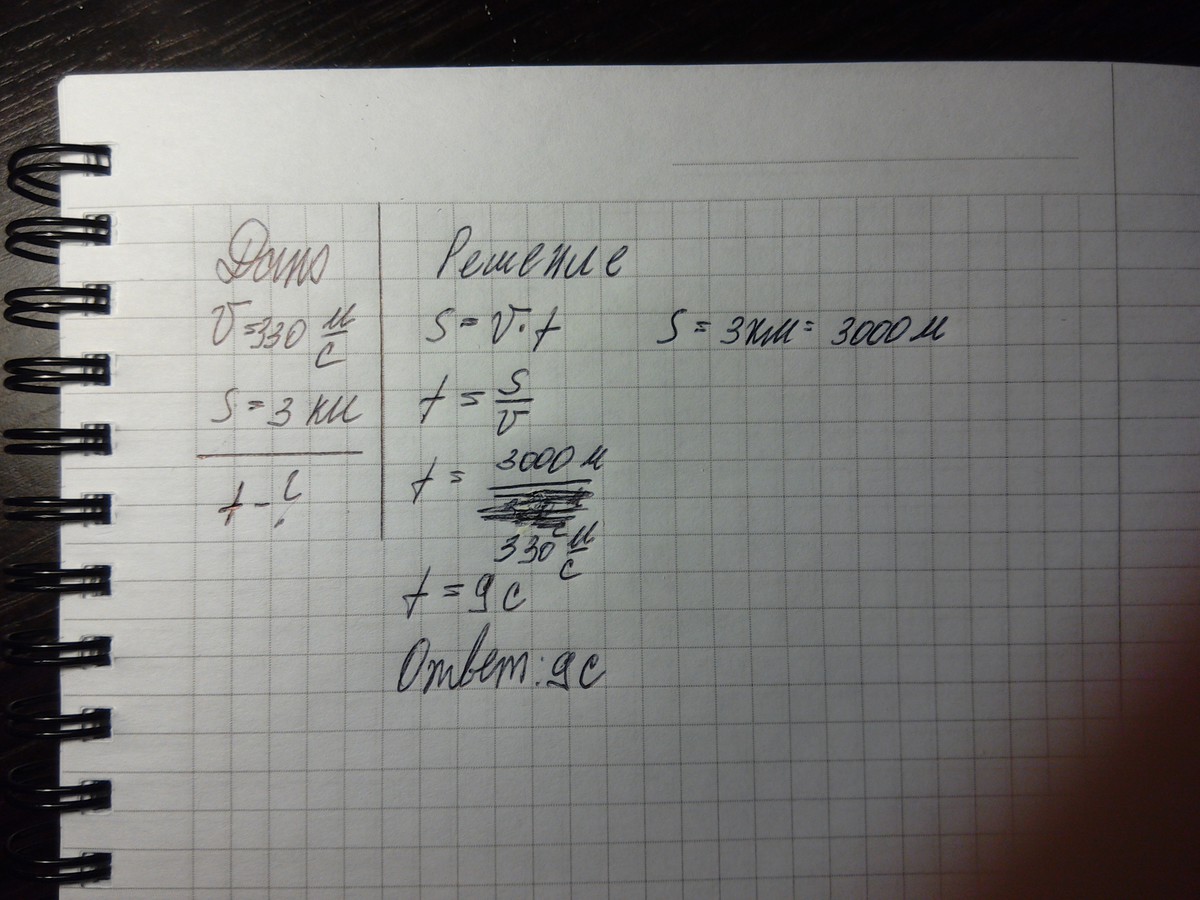 Дано
V=330 м/с
S = 3 км
t - ?
Решение
S = V · t
S = 3км = 3000 м
t = S/V
t = 3000 м / 330 м/с
t = 9 с
Ответ: 9 с